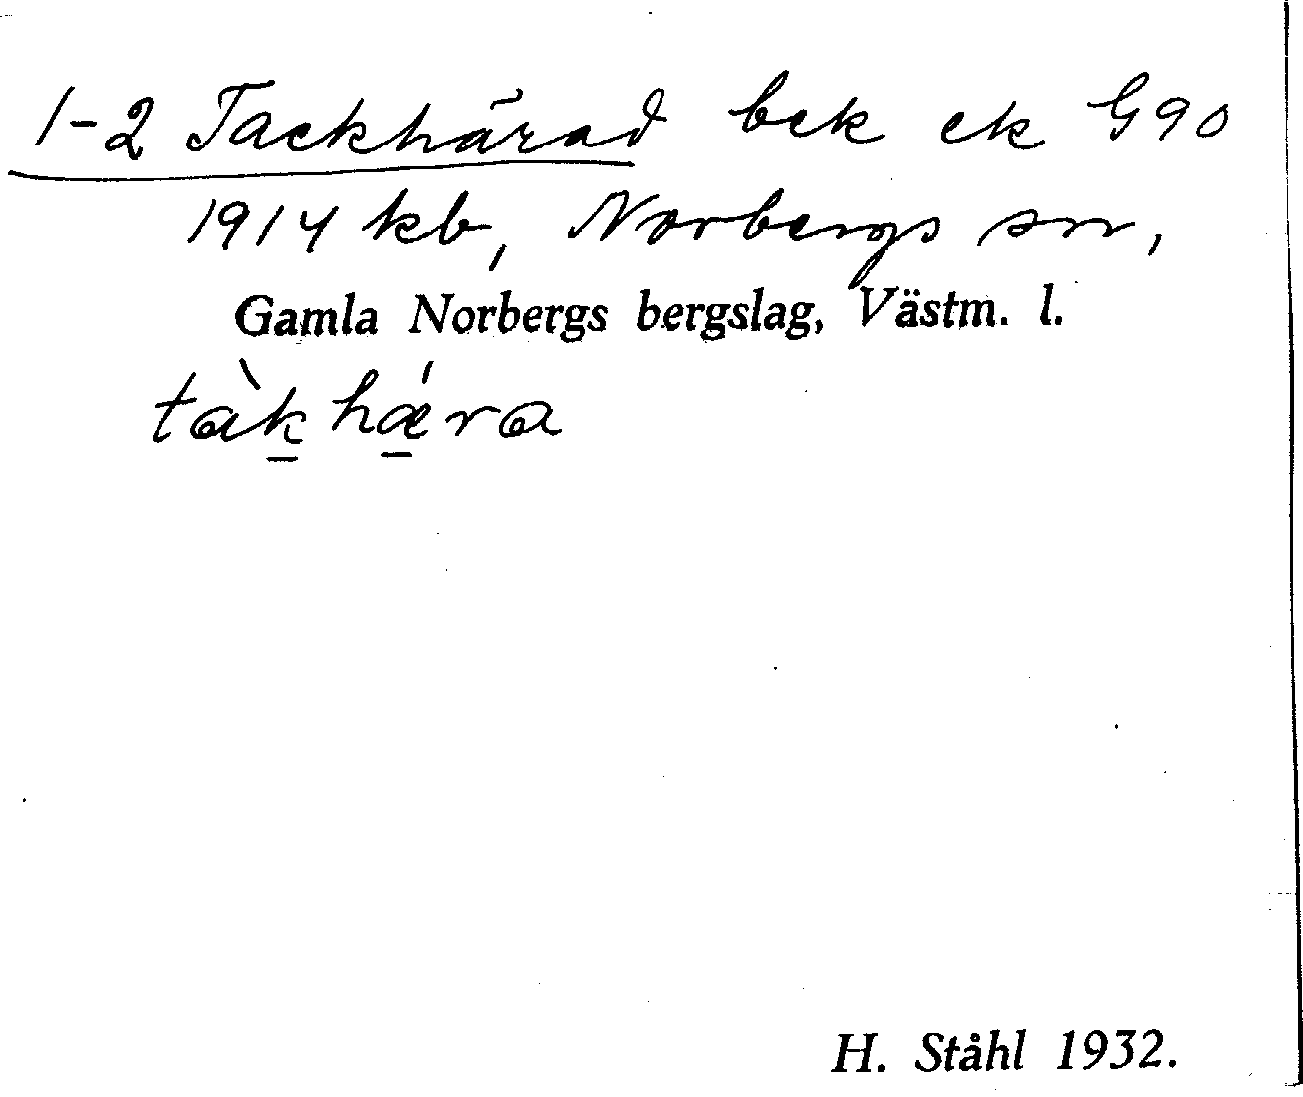 1-2 Tackhärad bek ek G90
1914 kb, Norbergs sn,
Gamla Norbergs bergslag, Västm. l.
tàk̠hǽ̠ra
H. Ståhl 1932.